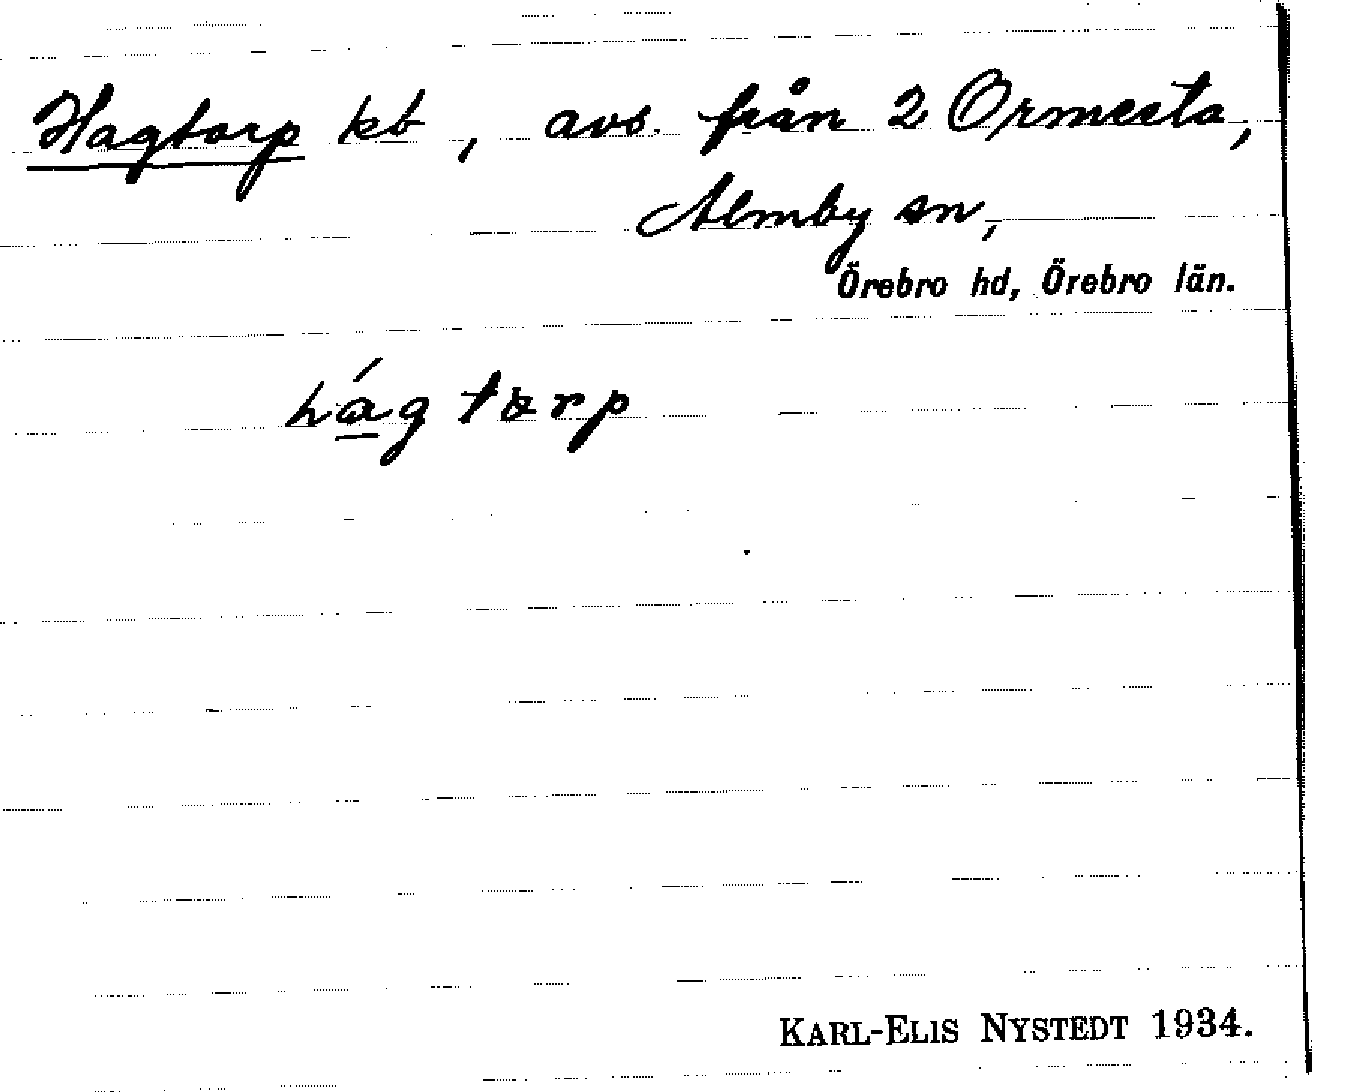 Hagtorp kt, avs. från 2 Ormesta,
Almby sn,
Örebro hd, Örebro län.
há̱g tɷrp
KARL-ELIS NYSTEDT 1934.